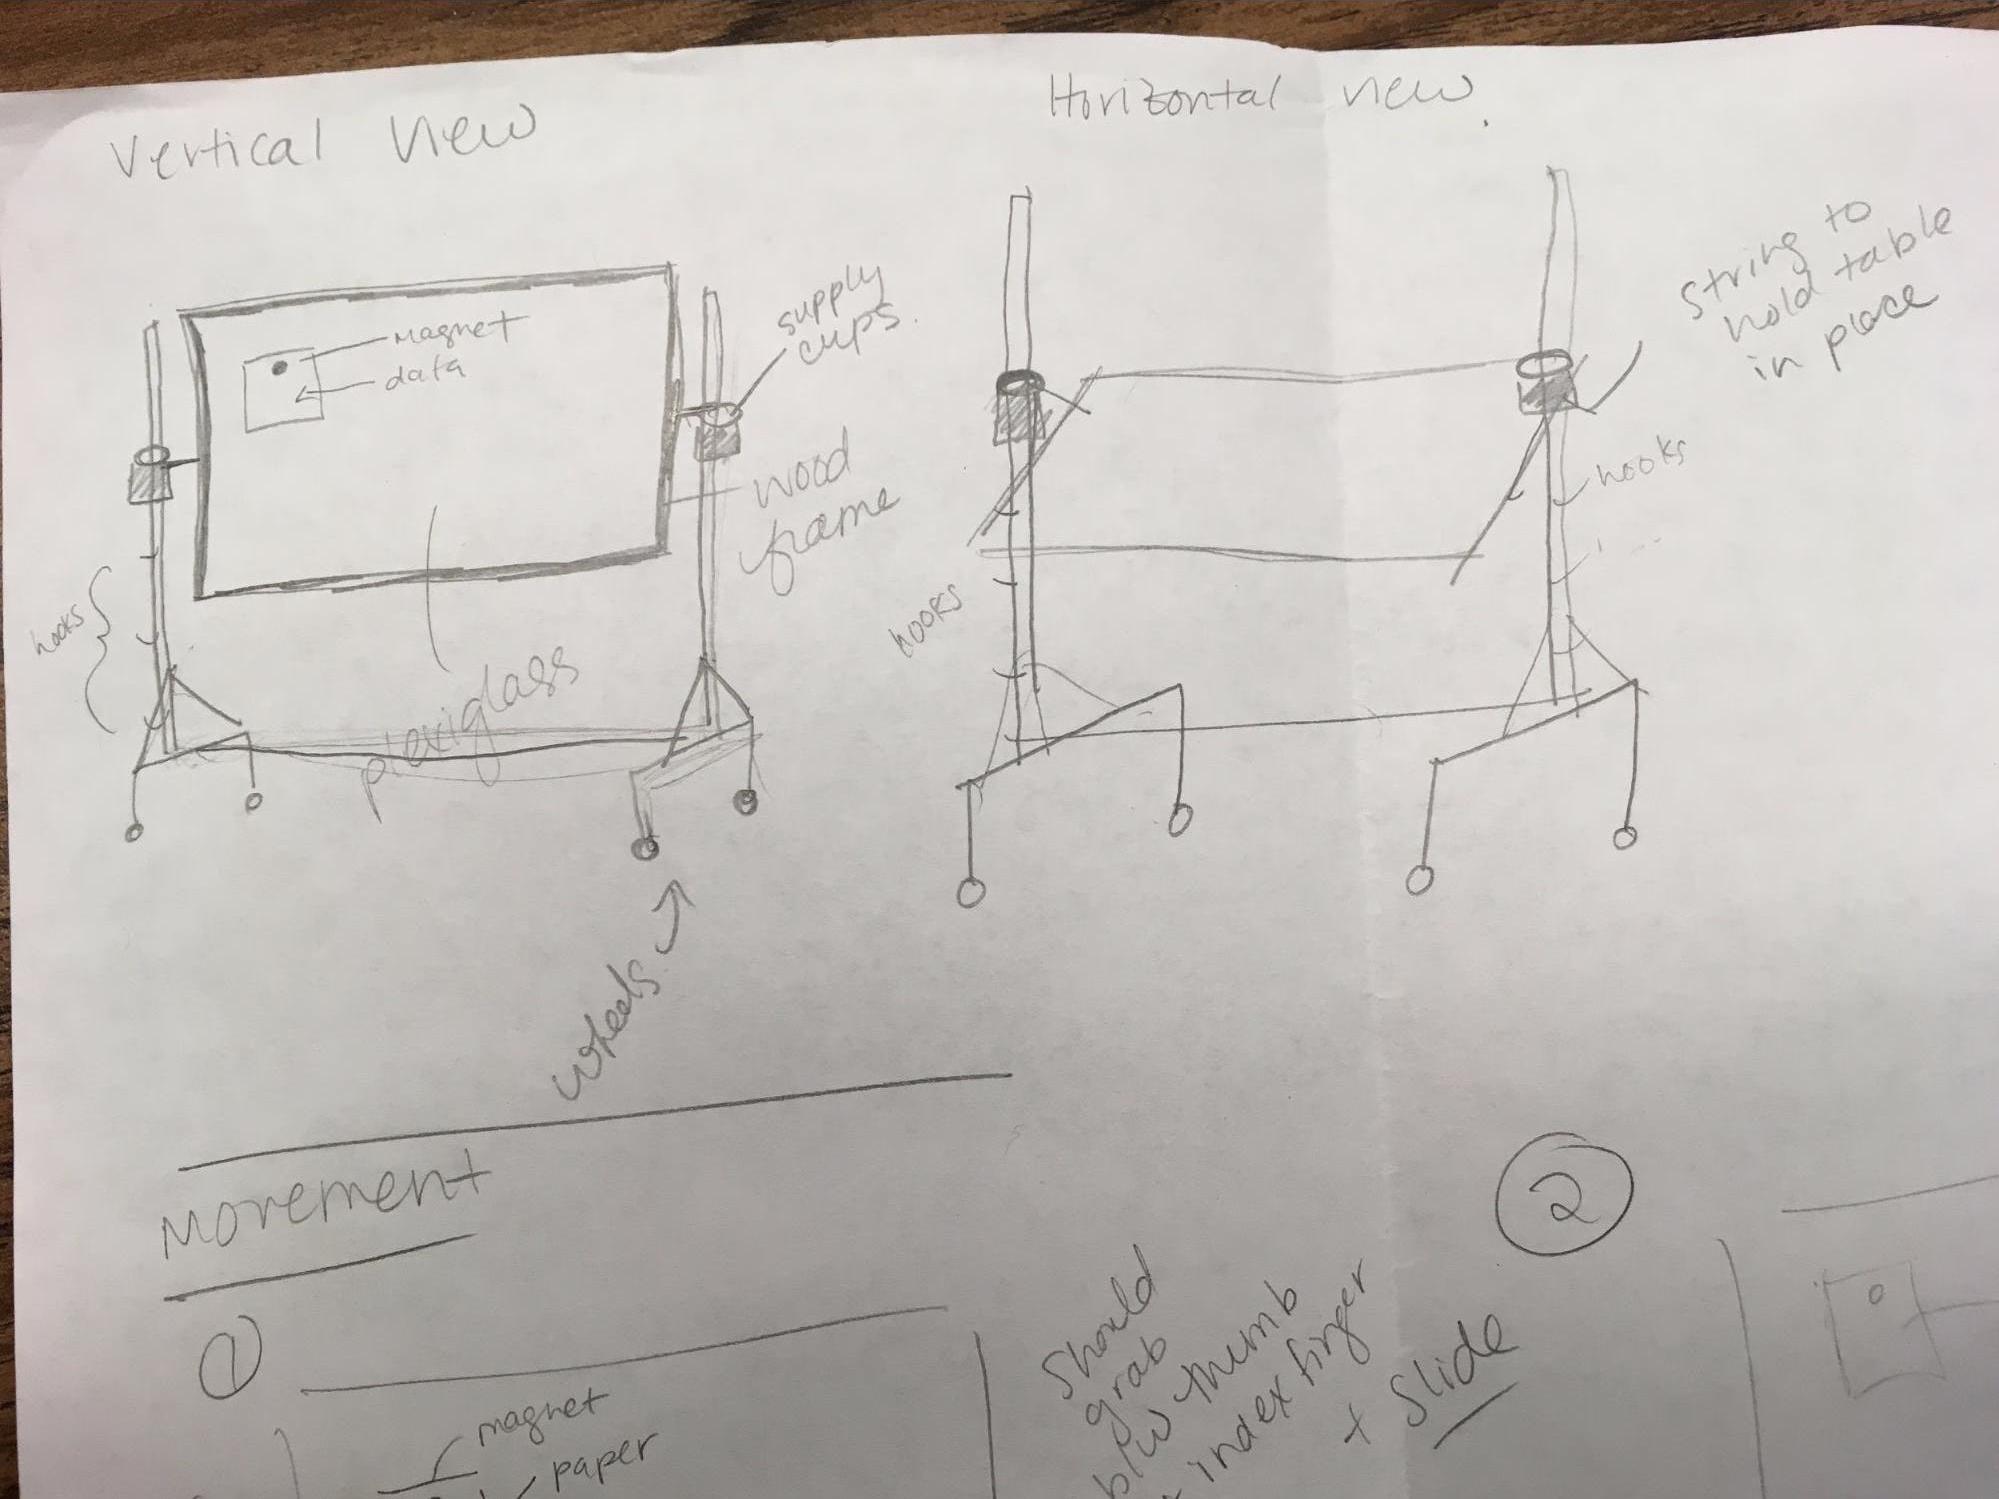 Vertical view
Horizontal view.
magnet
data
supply
cups.
wood
frame
hooks
plexiglass
wheels
String to
hold table
in place
hooks
hooks
Movement
1
magnet
paper
Should
grab
b/w thumb
index finger
+ Slide
2